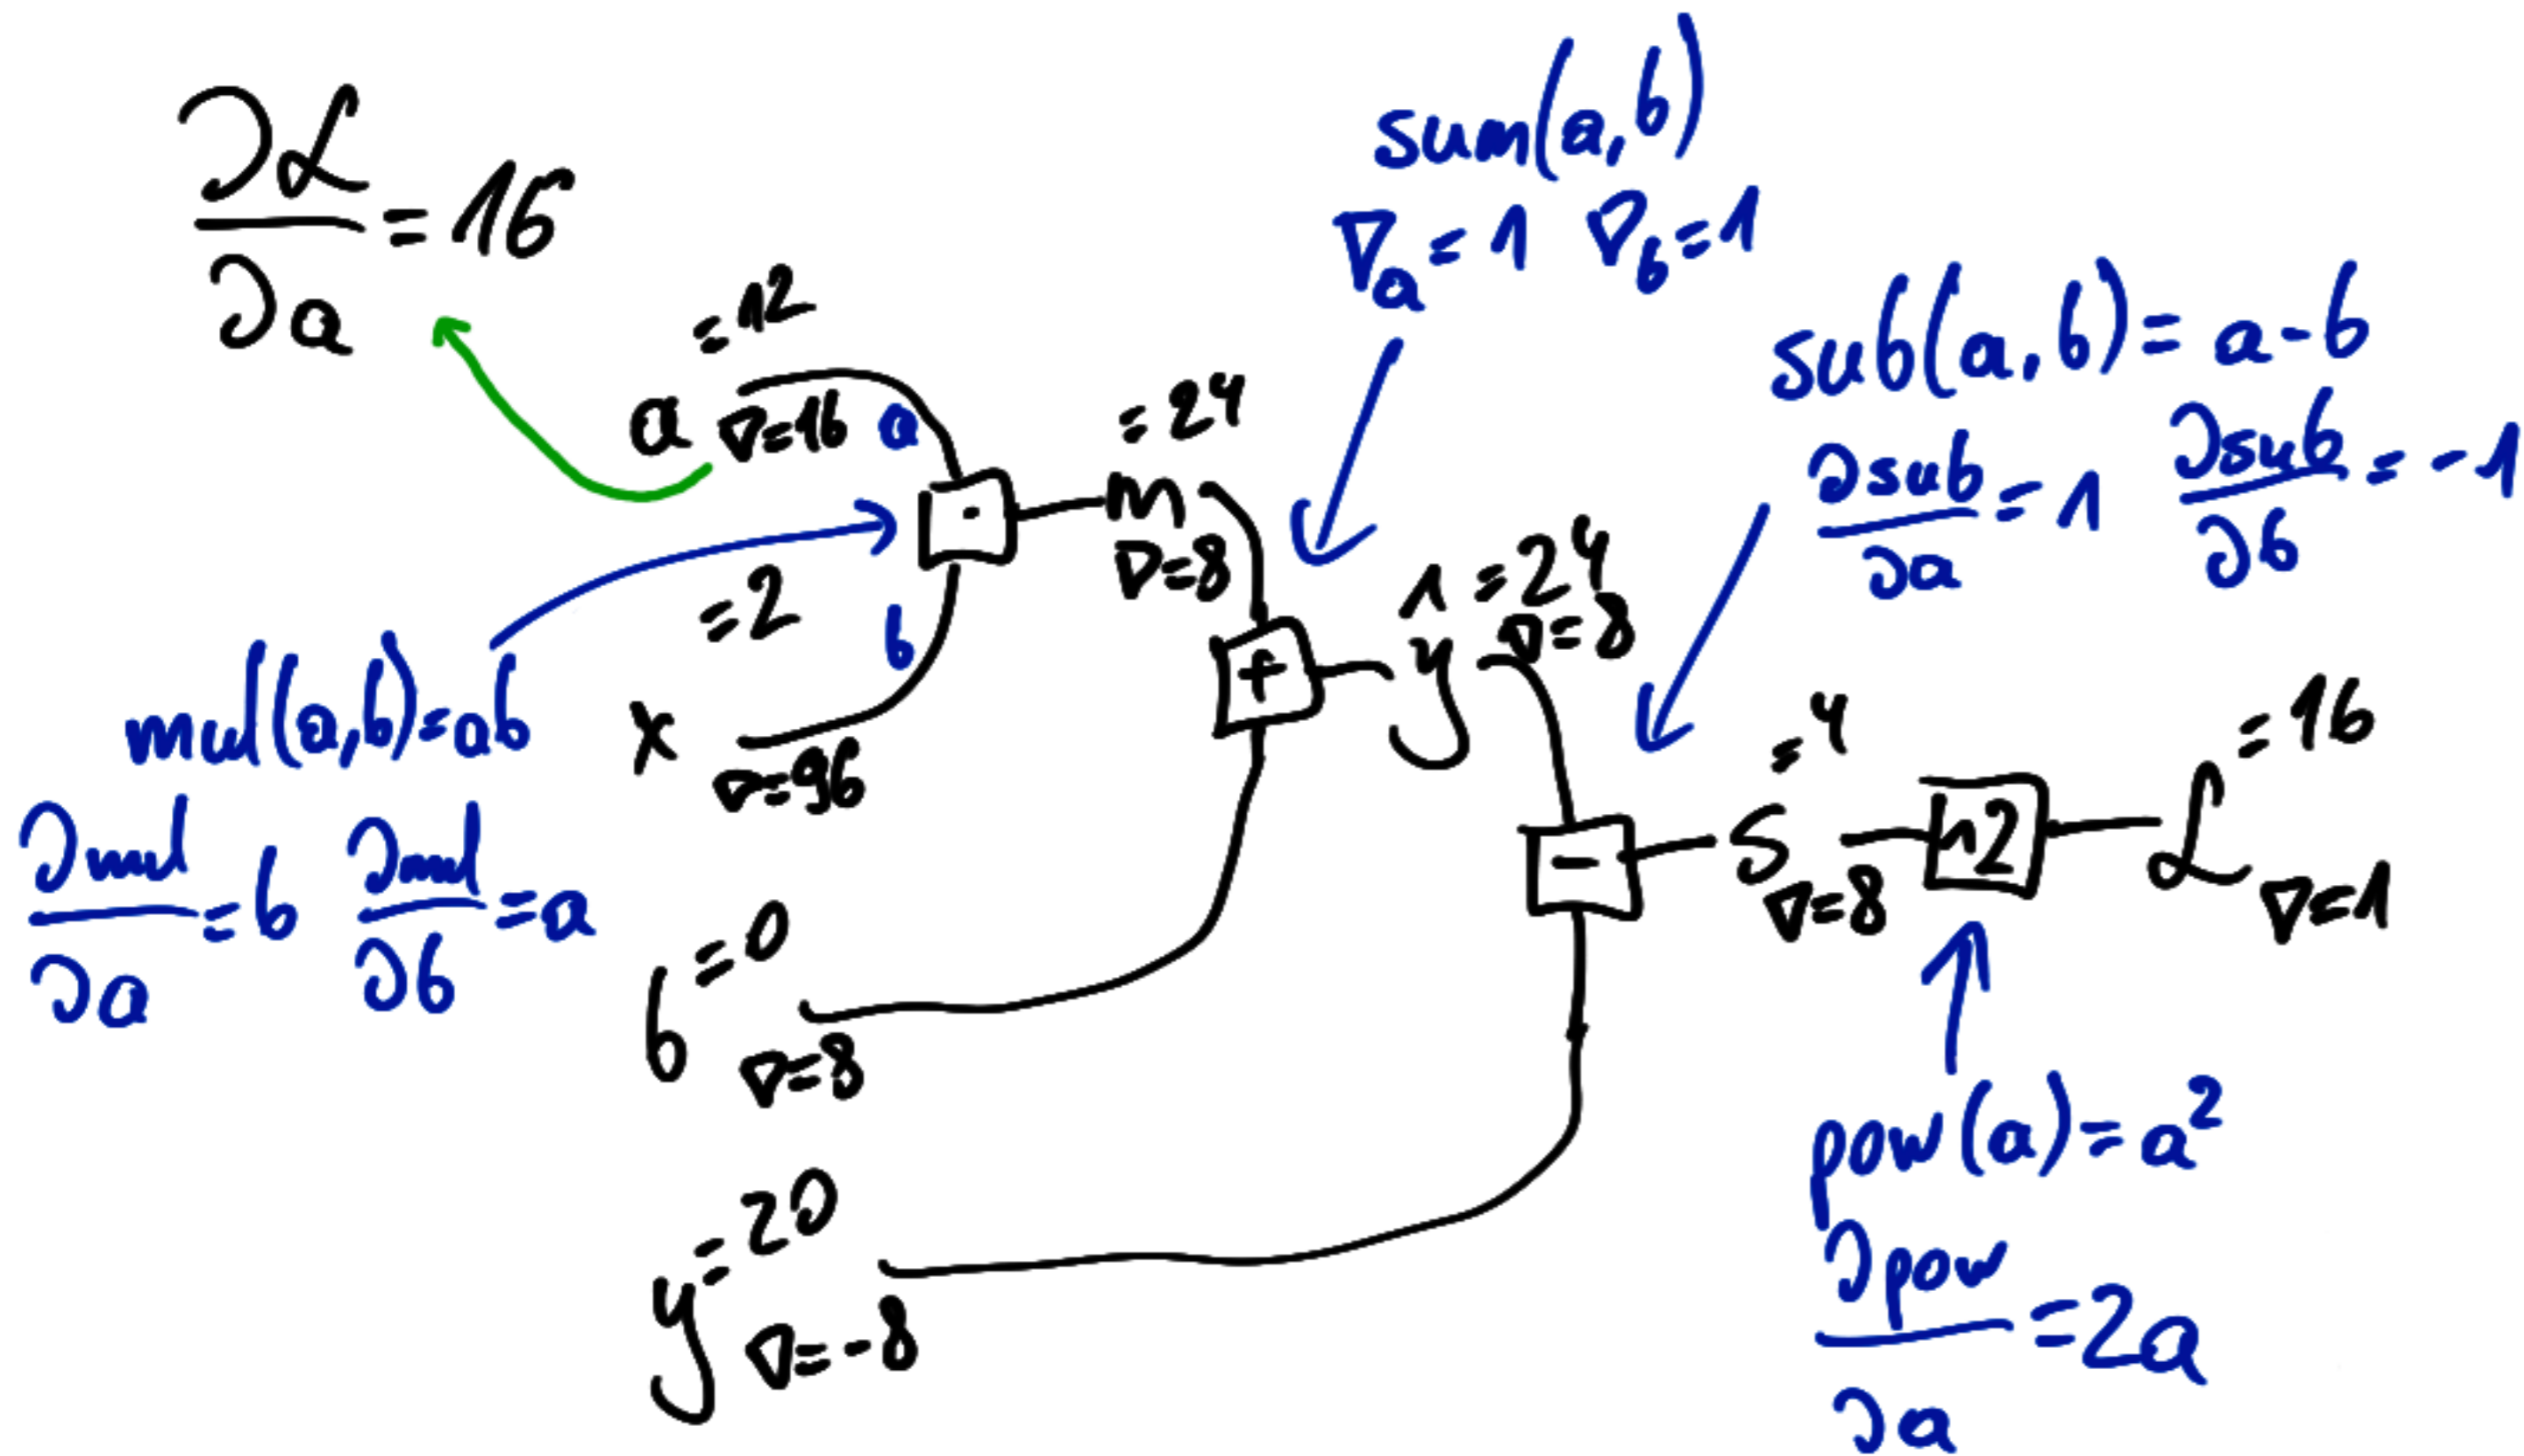 ∂ℒ/∂a = 16
sum(a,b)
∇a = 1 ∇b = 1
sub(a,b) = a - b
∂sub/∂a = 1 ∂sub/∂b = -1
a = 12
∇=16 a
·
m = 24
∇=8
x = 2
∇=96
b
mul(a,b)=ab
∂mul/∂a = b ∂mul/∂b = a
+
ŷ = 24
∇=8
b = 0
∇=8
-
s = 4
∇=8
^2
ℒ = 16
∇=1
y = 20
∇=-8
pow(a) = a²
∂pow/∂a = 2a